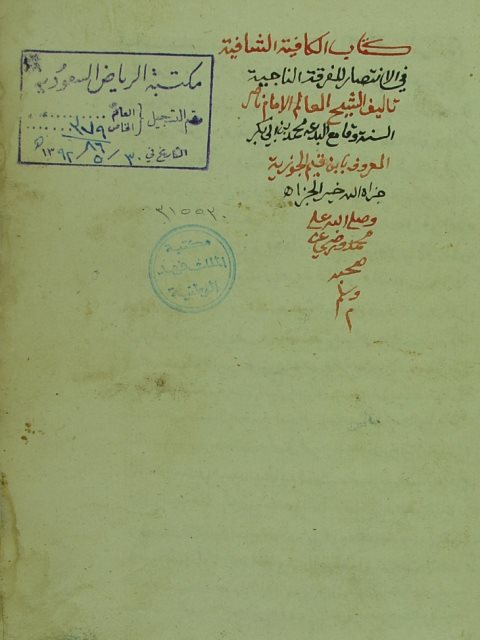 كتاب الكافية الشافية
في الانتصار للفرقة الناجية
تاليف الشيخ العالم الامام ناصر
السنة وقامع البدعه محمد بن ابي بكر
المعروف بابن قيم الجوزية
جزاه الله خير الجزاء
وصلى الله على
محمد ورضي عن
صحبه
وسلم
م
مكتبة الرياض السعودية
رقم التسجيل
العام
الخاص
٨٦
التاريخ في ٣٠ / ٥ / ١٣٩٢ هـ
٣١٥٥٣٠
مكتبة
الملك فهد
الوطنية